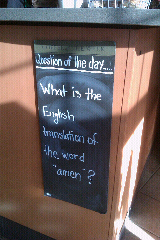 Question of the day....
What is the
English
translation of
the word
"amen"?